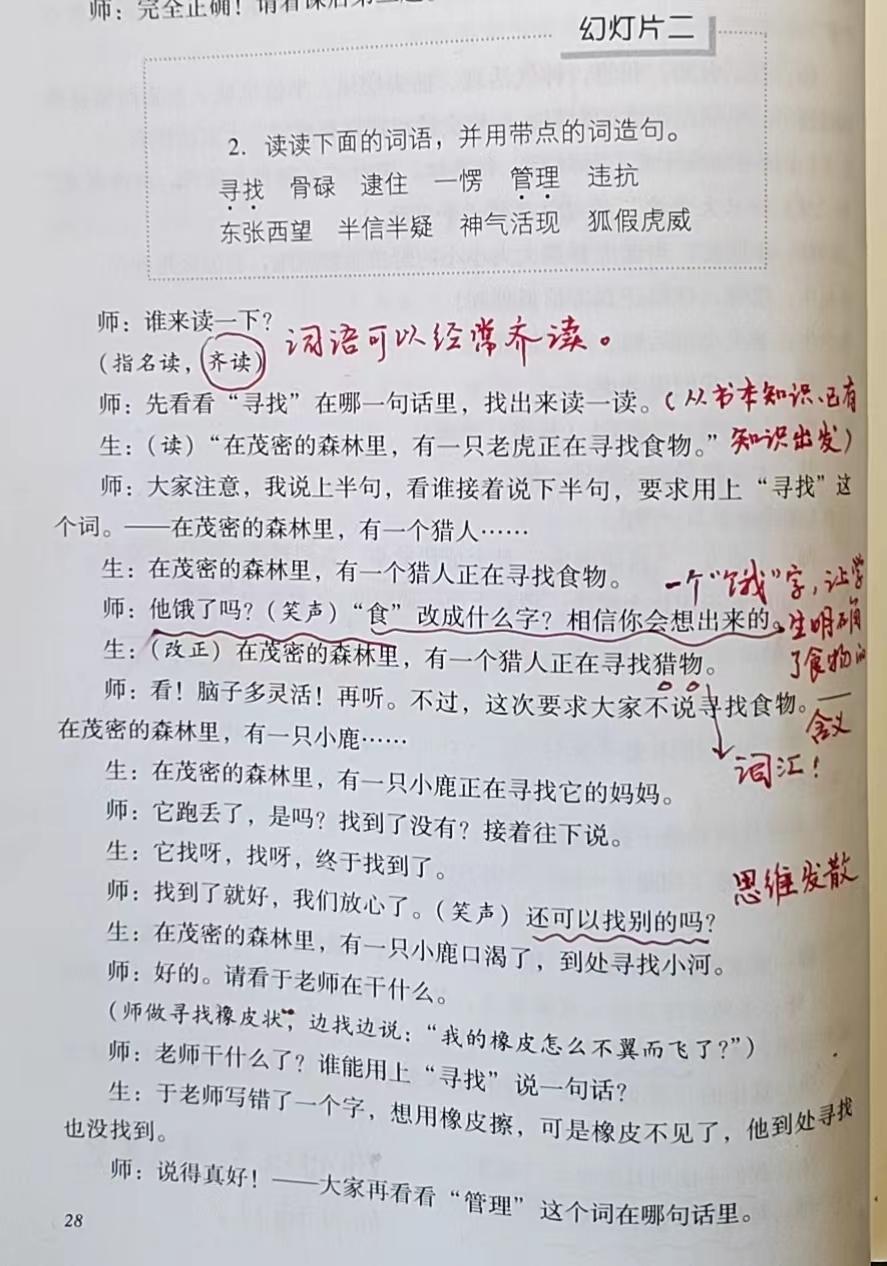 师：完全正确！请看课后第
幻灯片二
2. 读读下面的词语，并用带点的词造句。
寻找 骨碌 逮住 一愣 管理 违抗
东张西望 半信半疑 神气活现 狐假虎威
师：谁来读一下？
（指名读，齐读）
词语可以经常齐读。
师：先看看“寻找”在哪一句话里，找出来读一读。
（从书本知识、已有
生：（读）“在茂密的森林里，有一只老虎正在寻找食物。”
知识出发）
师：大家注意，我说上半句，看谁接着说下半句，要求用上“寻找”这
个词。——在茂密的森林里，有一个猎人……
生：在茂密的森林里，有一个猎人正在寻找食物。
一个“饿”字，让学
师：他饿了吗？（笑声）“食”改成什么字？相信你会想出来的。
生明确
生：（改正）在茂密的森林里，有一个猎人正在寻找猎物。
了食物的
师：看！脑子多灵活！再听。不过，这次要求大家不说寻找食物。——
含义
在茂密的森林里，有一只小鹿……
词汇！
生：在茂密的森林里，有一只小鹿正在寻找它的妈妈。
师：它跑丢了，是吗？找到了没有？接着往下说。
生：它找呀，找呀，终于找到了。
思维发散
师：找到了就好，我们放心了。（笑声）还可以找别的吗？
生：在茂密的森林里，有一只小鹿口渴了，到处寻找小河。
师：好的。请看于老师在干什么。
（师做寻找橡皮状，边找边说：“我的橡皮怎么不翼而飞了？”）
师：老师干什么了？谁能用上“寻找”说一句话？
生：于老师写错了一个字，想用橡皮擦，可是橡皮不见了，他到处寻找
也没找到。
师：说得真好！——大家再看看“管理”这个词在哪句话里。
28